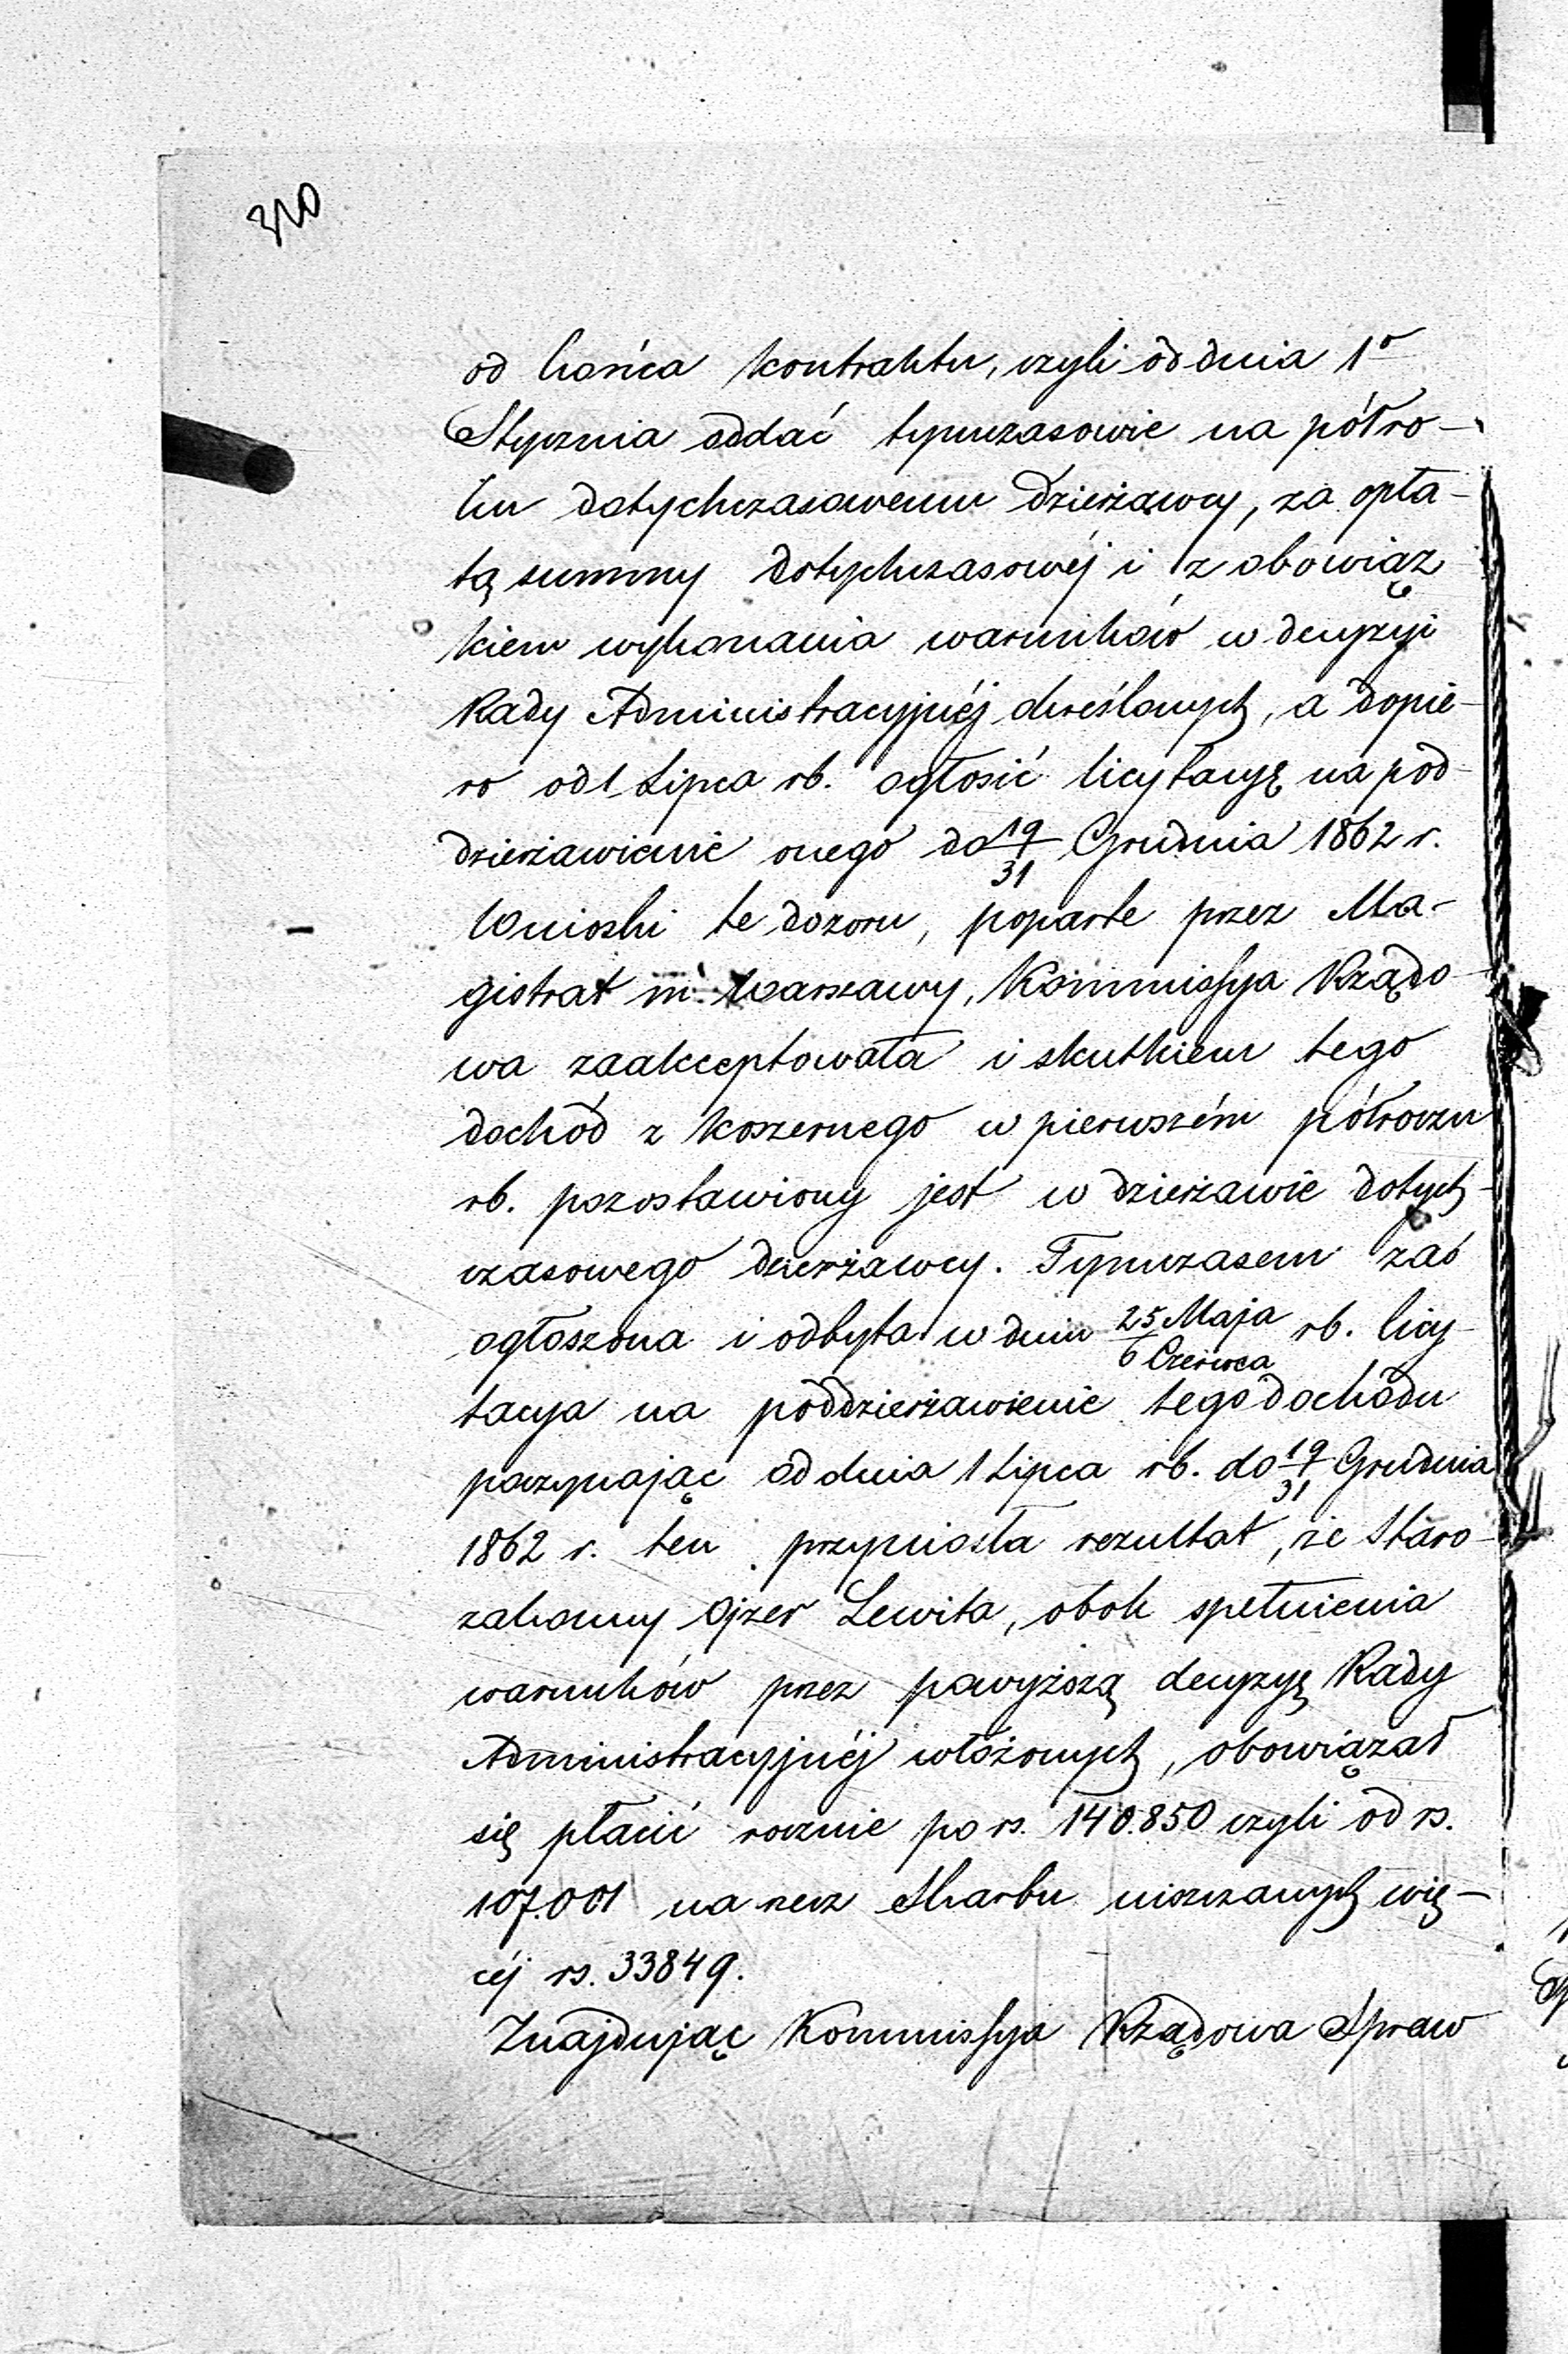 320
od końca kontraktu, czyli od dnia 1o
Stycznia oddać tymczasowie na półro-
ku dotychczasowemu dzierżawcy, za opła-
tą summy dotychczasowéj i z obowiąz
kiem wykonania warunków w decyzyi
Rady Administracyjnéj określonych, a dopie-
ro od 1 Lipca rb. ogłosić licytacyę na pod-
dzierżawienie onego do 19/31 Grudnia 1862 r.
Wnioski te dozoru, poparte przez Ma-
gistrat m. Warszawy, Kommissya Rządo-
wa zaakceptowała i skutkiem tego
dochód z koszernego w pierwszém półroczu
rb. pozostawiony jest w dzierżawie dotych-
czasowego dzierżawcy. Tymczasem zaś
ogłoszona i odbyta w dniu 25 Maja/6 Czerwca rb. licy-
tacya na poddzierżawienie tego dochodu
poczynając od dnia 1 Lipca rb. do 19/31 Grudnia
1862 r. ten przyniosła rezultat, że Staro-
zakonny Ojzer Lewita, obok spełnienia
warunków przez powyższą decyzyę Rady
Administracyjnéj włożonych, obowiązał
się płacić rocznie po rs. 140.850 czyli od rs.
107.001 na rzecz Skarbu uiszczanych wię-
céj rs. 33849.
Znajdując Kommissya Rządowa Spraw